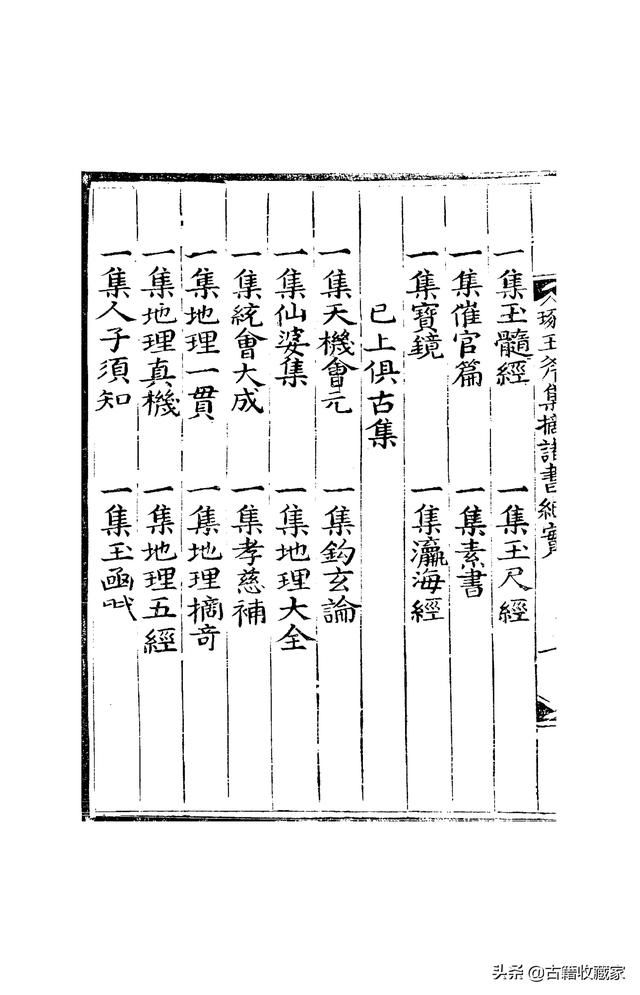 琢玉斧集摘諸書細實
一集玉髓經　一集玉尺經
一集催官篇　一集素書
一集寶鏡　一集瀛海經
已上俱古集
一集天機會元　一集鈎玄論
一集仙婆集　一集地理大全
一集統會大成　一集孝慈補
一集地理一貫　一集地理摘奇
一集地理真機　一集地理五經
一集人子須知　一集玉函
头条 @古籍收藏家